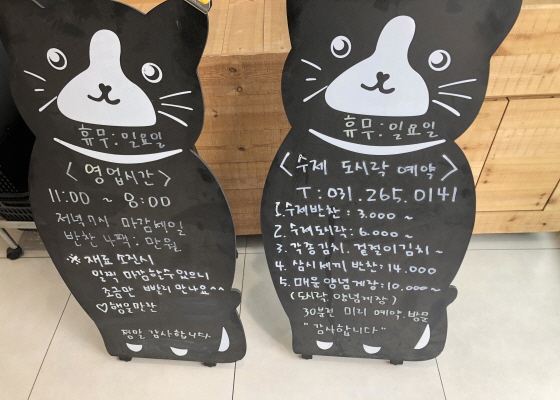 휴무:일요일
<영업시간>
11:00 ~ 8:00
저녁 7시 마감세일
반찬 4팩: 만원
※ 재료 소진시
일찍 마감할수 있으니
조금만 빨리 만나요^^
♡행운마찬
정말 감사합니다
휴무:일요일
<수제 도시락 예약>
T: 031.265.0141
1. 수제반찬: 3.000 ~
2. 수제도시락: 6.000 ~
3. 각종김치. 겉절이김치 ~
4. 삼시세끼 반찬: 14.000
5. 매운양념게장: 10.000~
(도시락 양념게장)
30분전 미리 예약.방문
"감사합니다"